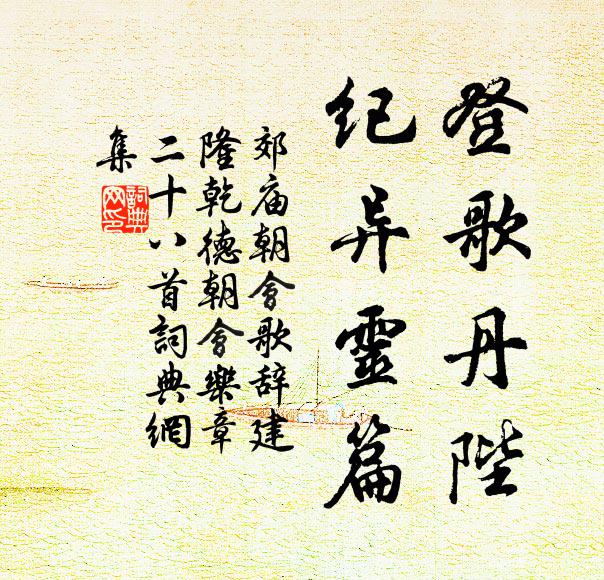 登歌丹陛
纪异靈篇
郊庙朝會歌辞建
隆乾德朝會樂章
二十八首詞典網
集
詞典網印